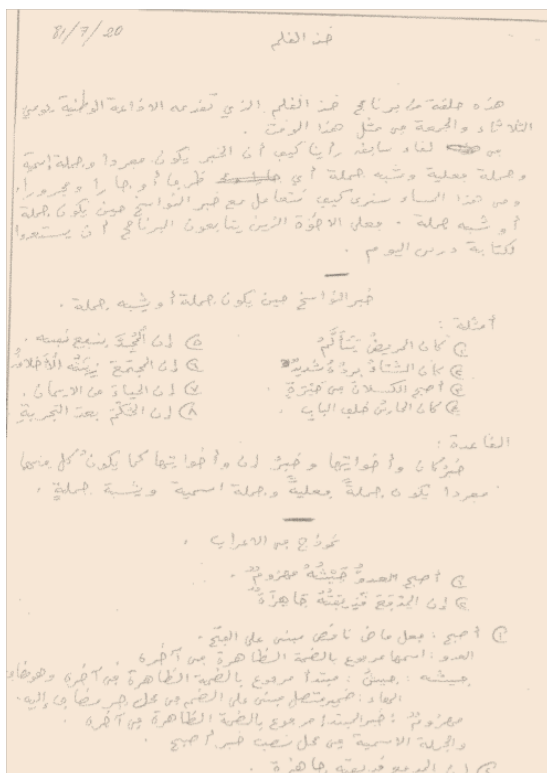 81/7/20
خذ القلم
هذه حلقة من برنامج خذ القلم الذي تقدمه الاذاعة الوطنية يومي
الثلاثاء والجمعة في مثل هذا الوقت .
في لقاء سابق رأينا كيف أن الخبر يكون مفردا وجملة إسمية
وجملة فعلية وشبه جملة أي ظرفا أو جارا ومجرورا،
وفي هذا المساء سنرى كيف نتعامل مع خبر النواسخ حين يكون جملة
أو شبه جملة . فعلى الاخوة الذين يتابعون البرنامج أن يستعدوا
لكتابة درس اليوم .
خبر النواسخ حين يكون جملة أو شبه جملة .
أمثلة :
كان المريضُ يَتَأَلَّمُ
كان الشتاءُ بردُه شديدٌ
أصبح الكسلانُ في حَيْرَةٍ .
كان الحارسُ خلفَ البابِ .
إن المُجِدَّ ينفع نفسه .
إن المجتمعَ زينَتُه الأخلاقُ
إن الحياءَ من الايمان .
إن الحُكْمَ بعد التجربةِ
القاعدة :
خبرُ كان وأخواتها وخبرُ إن وأخواتها كما يكون كل منهما
مفردا يكون جملةً فعليةً وجملة اسمية وشبه جملةٍ .
نموذج في الاعراب .
1) أصبح العدوُّ جَيْشُهُ مهزومٌ .
2) إن المدفعَ قذيفتُهُ جاهزةٌ
1) أصبح : فعل ماض ناقص مبني على الفتح .
العدو : اسمها مرفوع بالضمة الظاهرة في آخره
جيشه : جيشُ : مبتدأ مرفوع بالضمة الظاهرة في آخره وهو مضاف
الهاء : ضمير متصل مبني على الضم في محل جر مضاف إليه .
مهزومٌ : خبر المبتدإ مرفوع بالضمة الظاهرة في آخره .
والجملة الاسمية في محل نصب خبر أصبح .
2) إن المدفع قذيفته جاهزة .